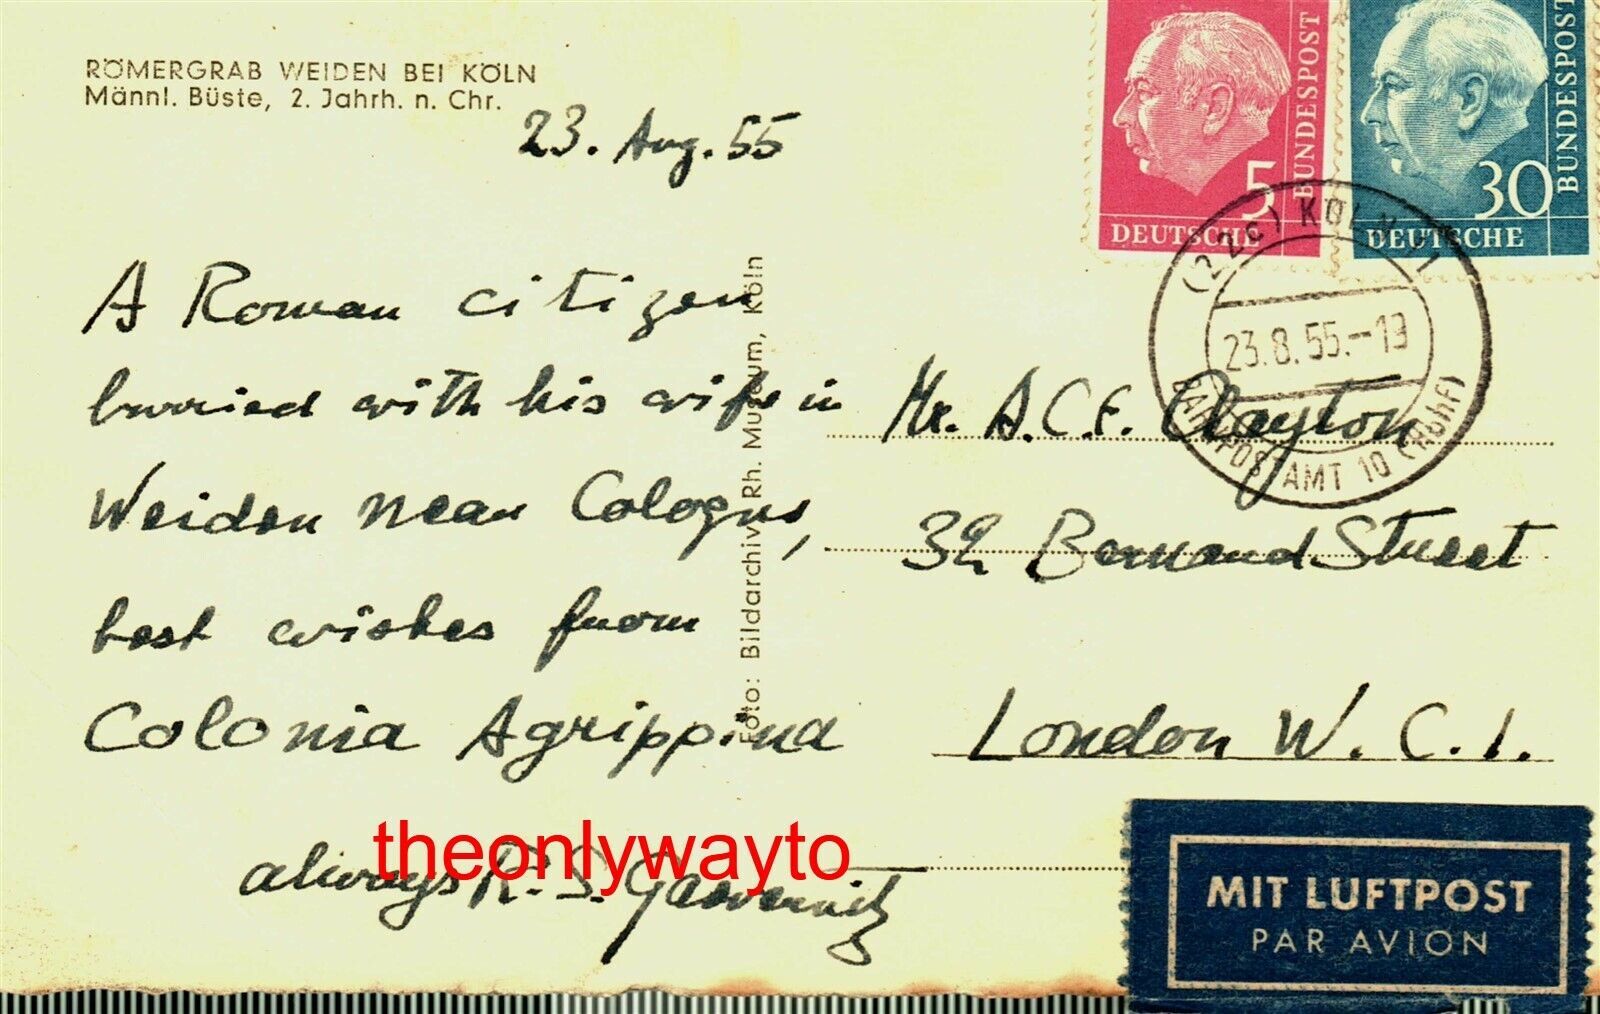 RÖMERGRAB WEIDEN BEI KÖLN
Männl. Büste, 2. Jahrh. n. Chr.
23. Aug. 55
A Roman citizen
burried with his wife in
Weiden near Cologne,
best wishes from
Colonia Agrippina
always R. S.
theonlywayto
Foto: Bildarchiv Rh. Museum, Köln
5
BUNDESPOST
DEUTSCHE
30
BUNDESPOST
DEUTSCHE
(22c) KÖLN 1
23.8.55.-19
BAHNPOSTAMT 10 (Rbhf)
Mr. A.C.F. Clayton
32 Bernard Street
London W.C.1.
MIT LUFTPOST
PAR AVION